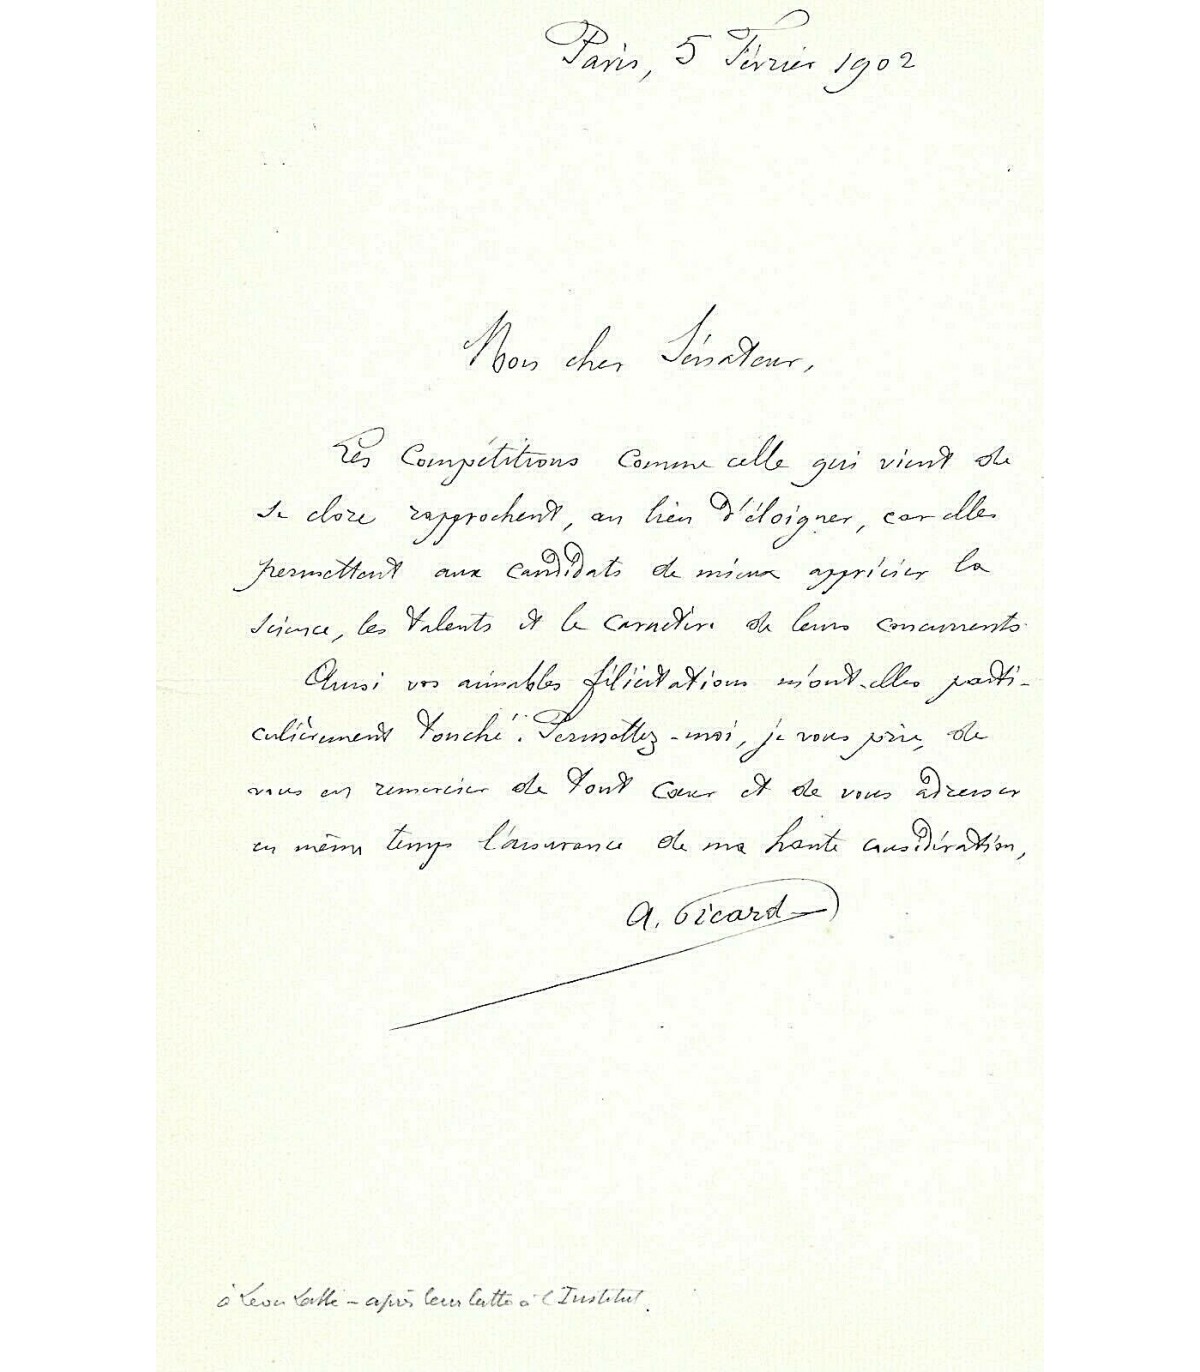 Paris, 5 Février 1902
Mon cher Sénateur,
Les compétitions comme celle qui vient de
se clore rapprochent, au lieu d'éloigner, car elles
permettent aux candidats de mieux apprécier la
science, les talents et le caractère de leurs concurrents.
Aussi vos aimables félicitations m'ont-elles parti-
culièrement touché. Permettez-moi, je vous prie, de
vous en remercier de tout cœur et de vous adresser
en même temps l'assurance de ma haute considération,
A. Picard
à Léon Labbé - après leur lutte à l'Institut.